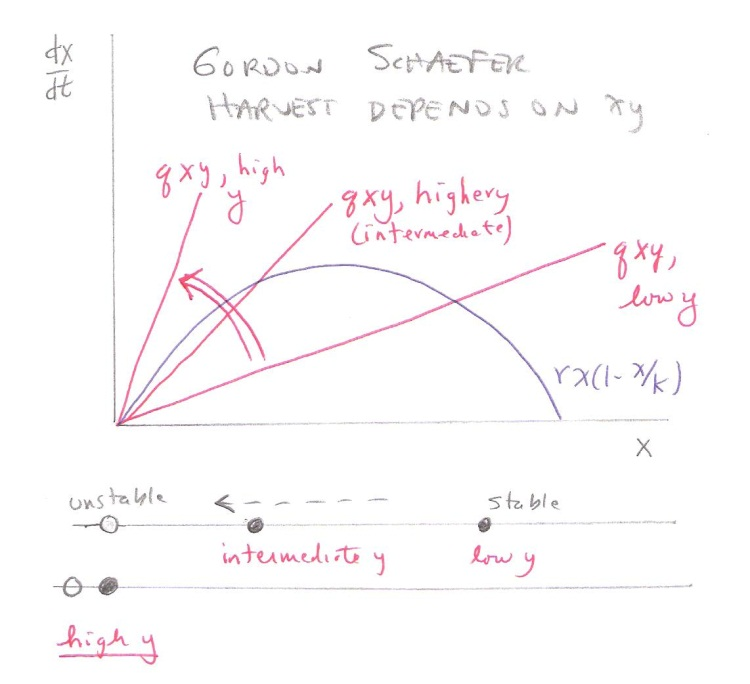 dx
dt
GORDON SCHAEFER
HARVEST DEPENDS ON xy
qxy, high
y
qxy, higher y
(intermediate)
qxy,
low y
rx(1-x/k)
x
unstable
stable
intermediate y
low y
high y